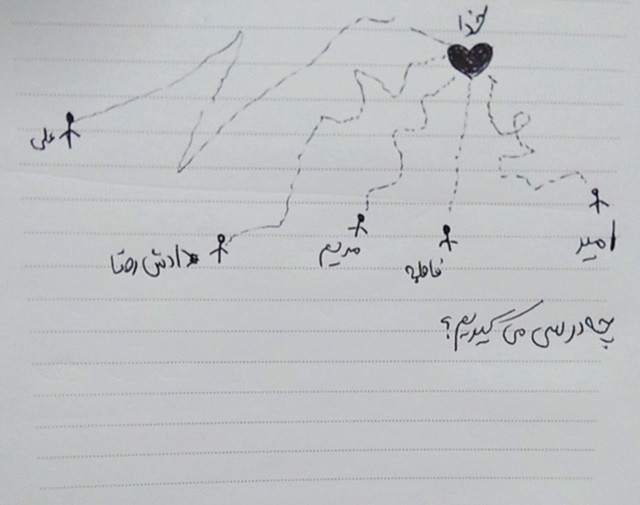 خدا
علی
داش رضا
مریم
فاطمه
امید
چه درسی می گیریم؟